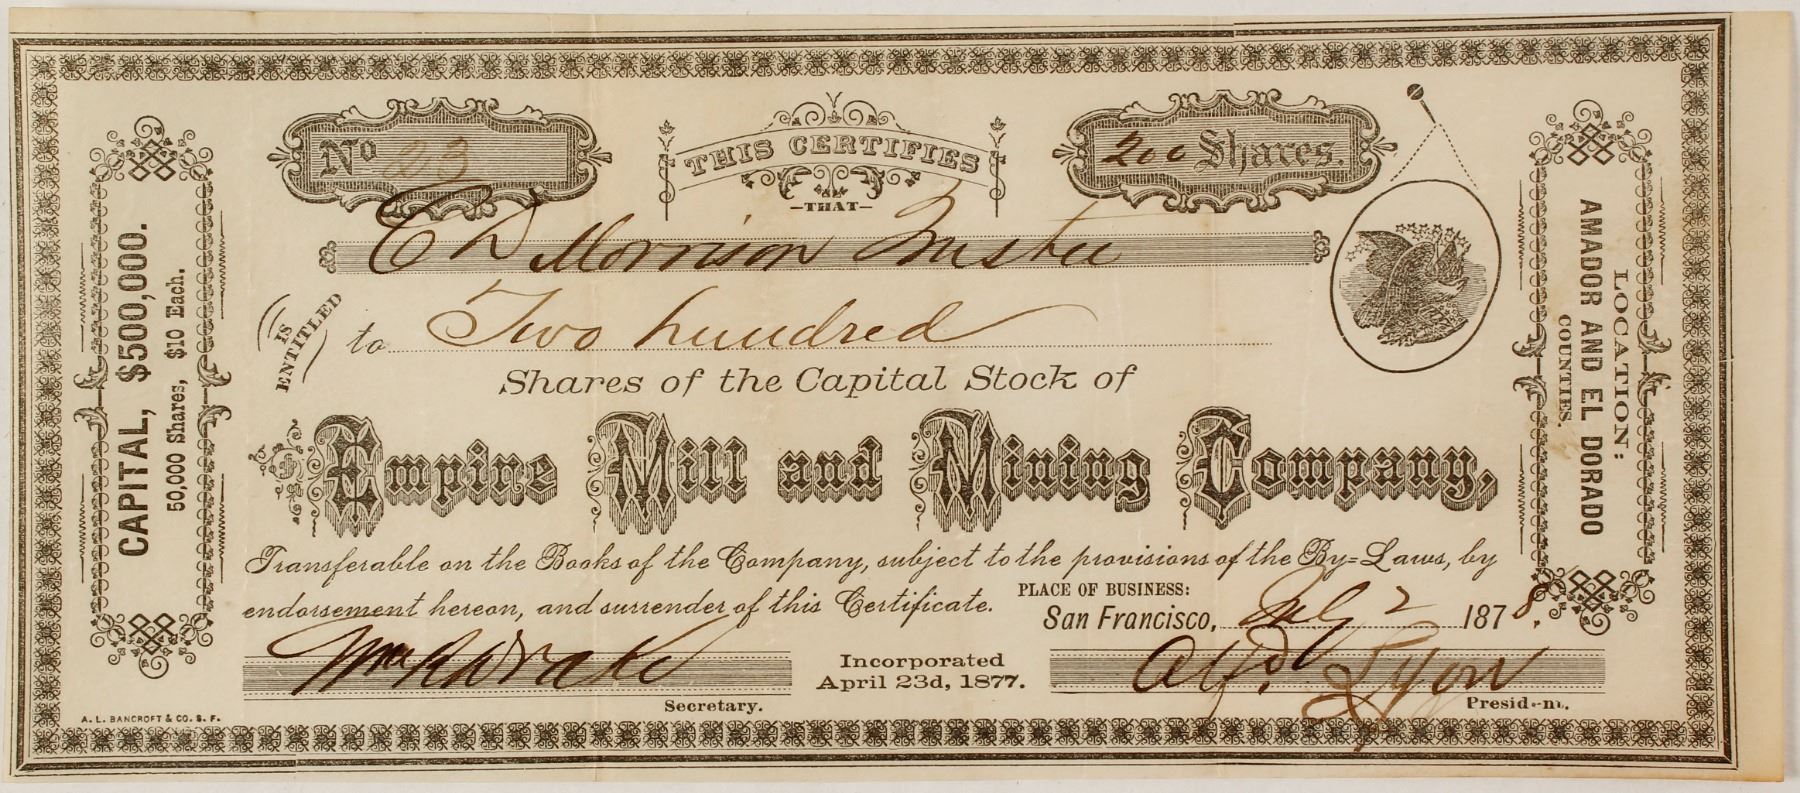 No 23
THIS CERTIFIES
—THAT—
200 Shares.
C D Morrison Trustee
IS ENTITLED to Two hundred
Shares of the Capital Stock of
Empire Mill and Mining Company,
Transferable on the Books of the Company, subject to the provisions of the By=Laws, by
endorsement hereon, and surrender of this Certificate.
PLACE OF BUSINESS:
San Francisco, July 2 1878.
Wm R Drake
Secretary.
Incorporated
April 23d, 1877.
Alfd. Lyon
President.
CAPITAL, $500,000.
50,000 Shares, $10 Each.
LOCATION:
AMADOR AND EL DORADO
COUNTIES.
A. L. BANCROFT & CO. S. F.